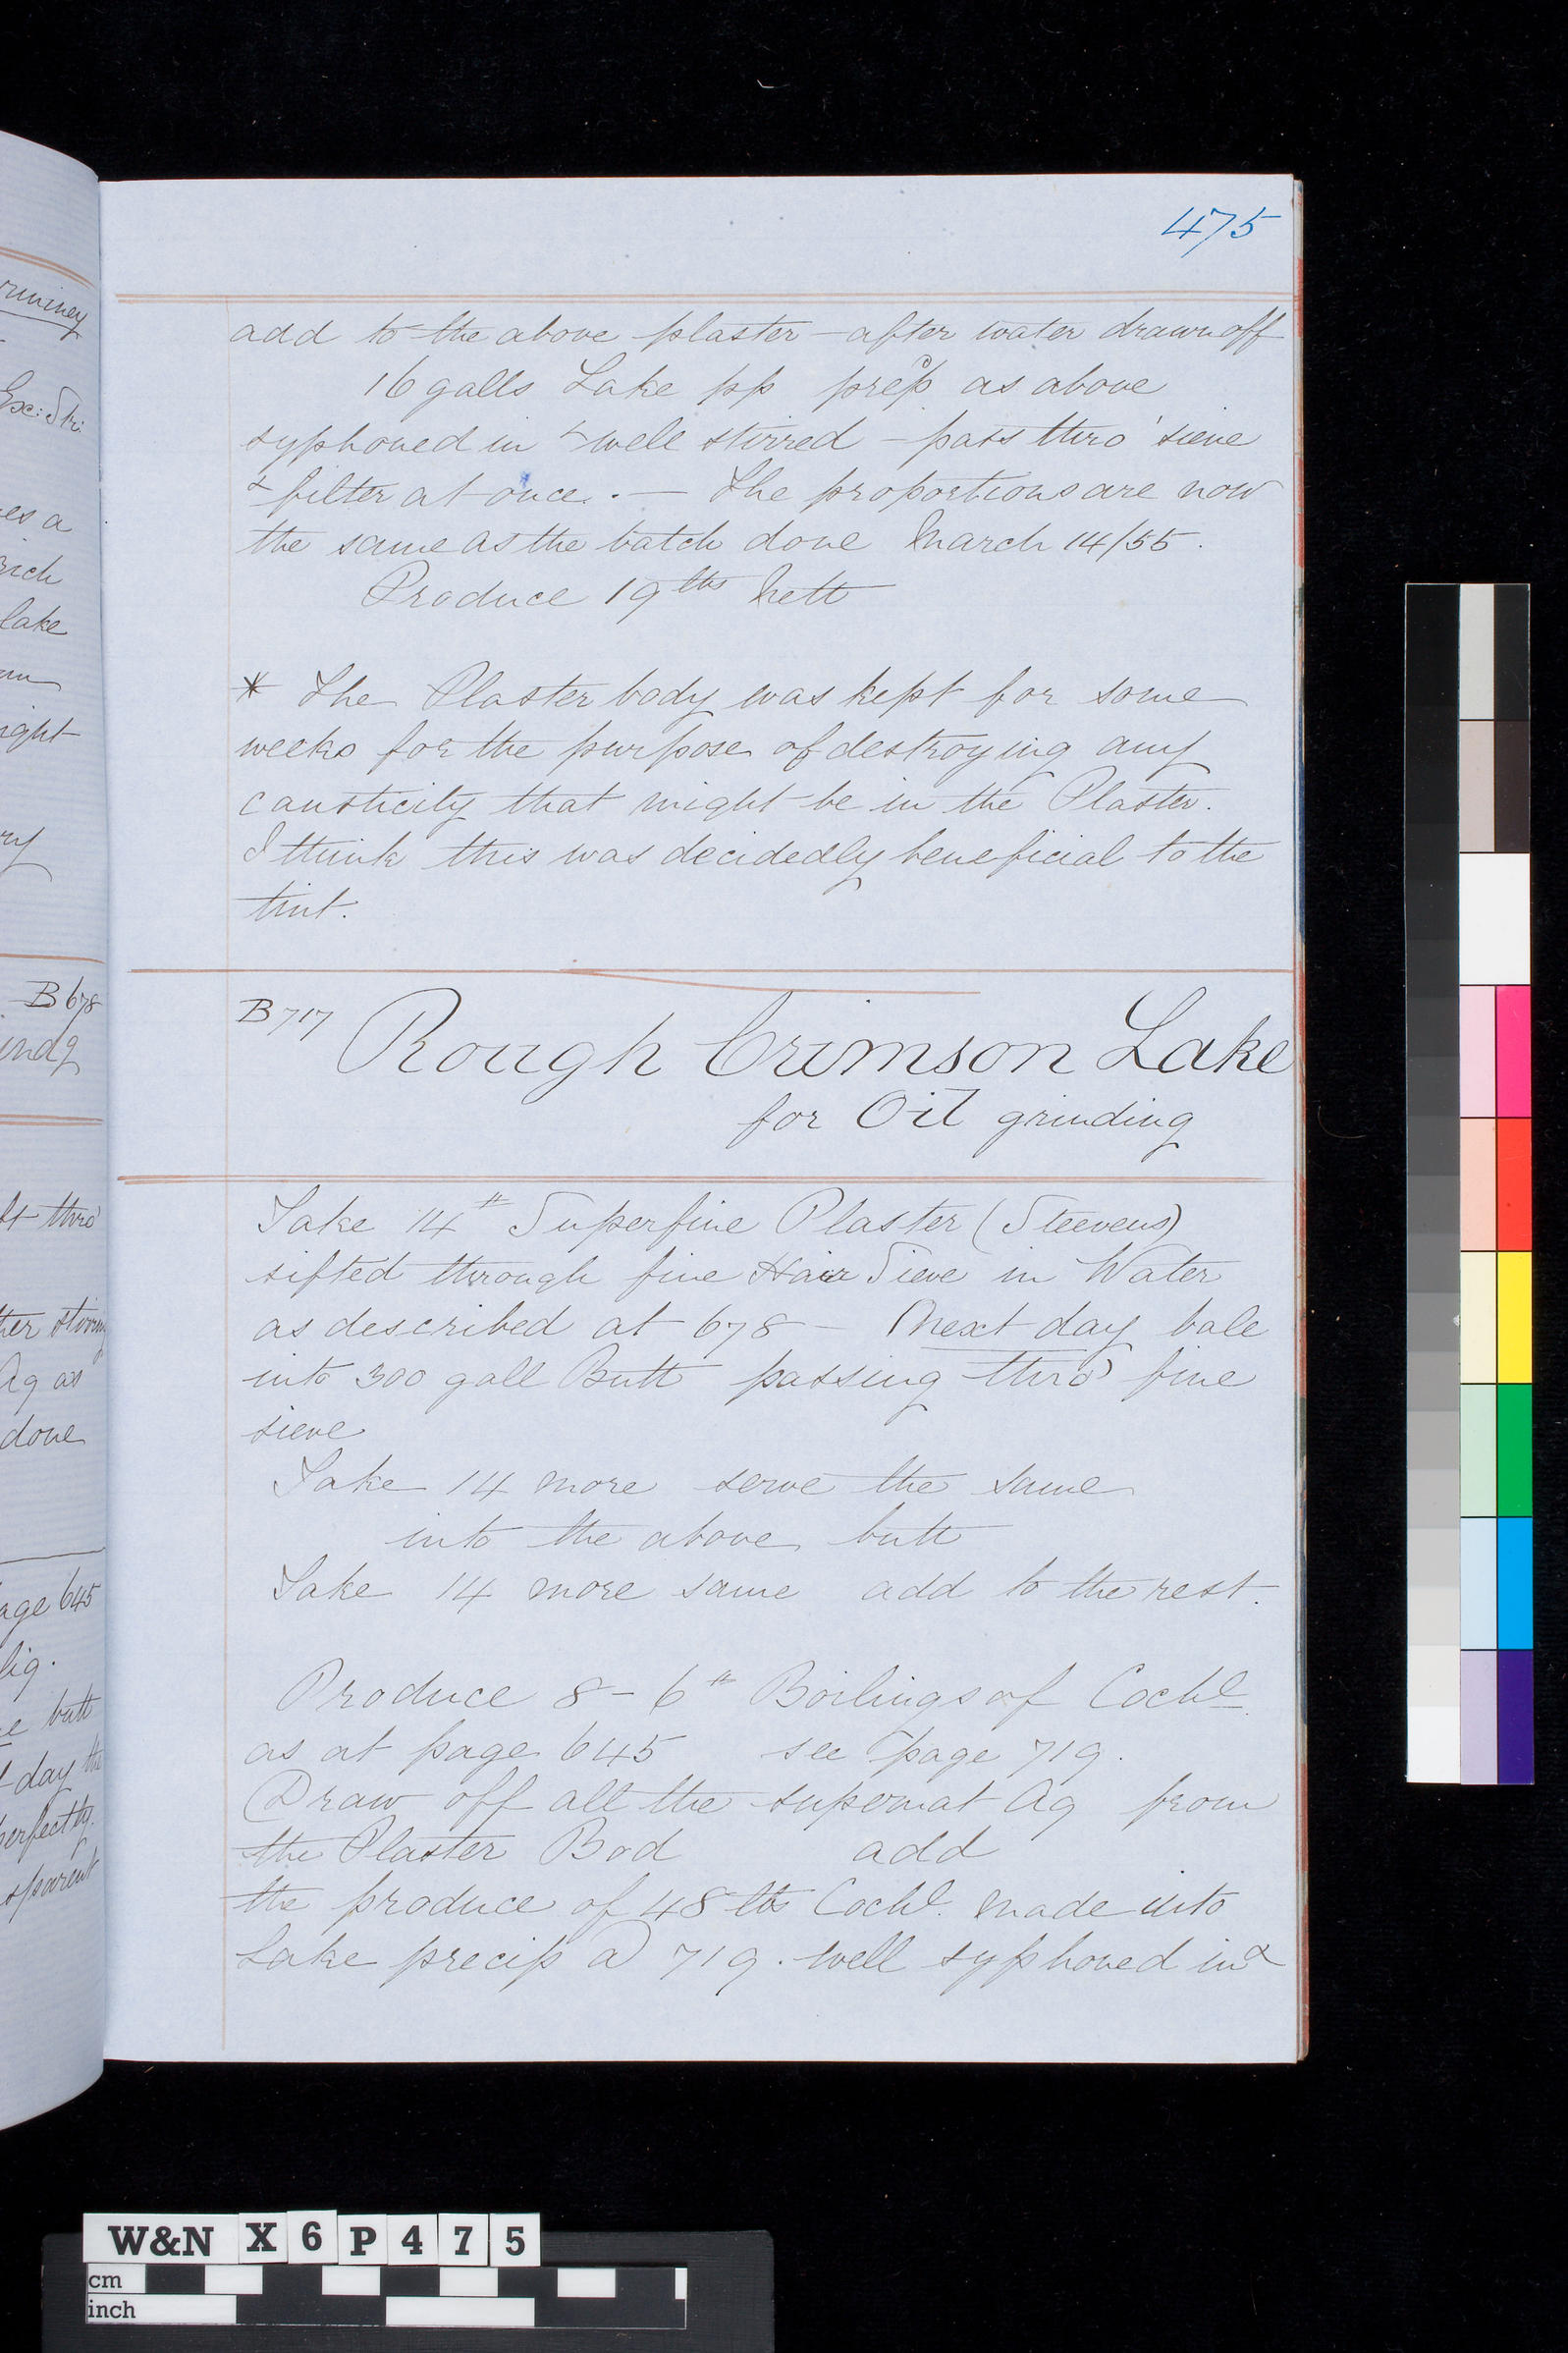 475
add to the above plaster – after water drawn off
16 galls Lake pp prep as above
syphoned in & well stirred – pass thro' sieve
& filter at once. . — The proportions are now
the same as the batch done March 14/55.
Produce 19 lbs Nett
* The Plaster body was kept for some
weeks for the purpose of destroying any
causticity that might be in the Plaster.
I think this was decidedly beneficial to the
tint.
B 717 Rough Crimson Lake
for Oil grinding
Take 14 # Superfine Plaster (Steevens)
sifted through fine Hair Sieve in Water
as described at 678 – Next day bale
into 300 gall Butt passing thro' fine
sieve
Take 14 more serve the same
into the above butt
Take 14 more same add to the rest.
Produce 8 – 6 # Boilings of Cochl
as at page 645 see page 719.
Draw off all the supernat Aq from
the Plaster Bod add
the produce of 48 lbs Cochl. made into
Lake precip a 719. well syphoned in &
rminey
es a
lake
ight
B 678
thro'
Aq as
done
age 645
lig.
butt
day the
perfectly.
W&N X 6 P 4 7 5
cm
inch